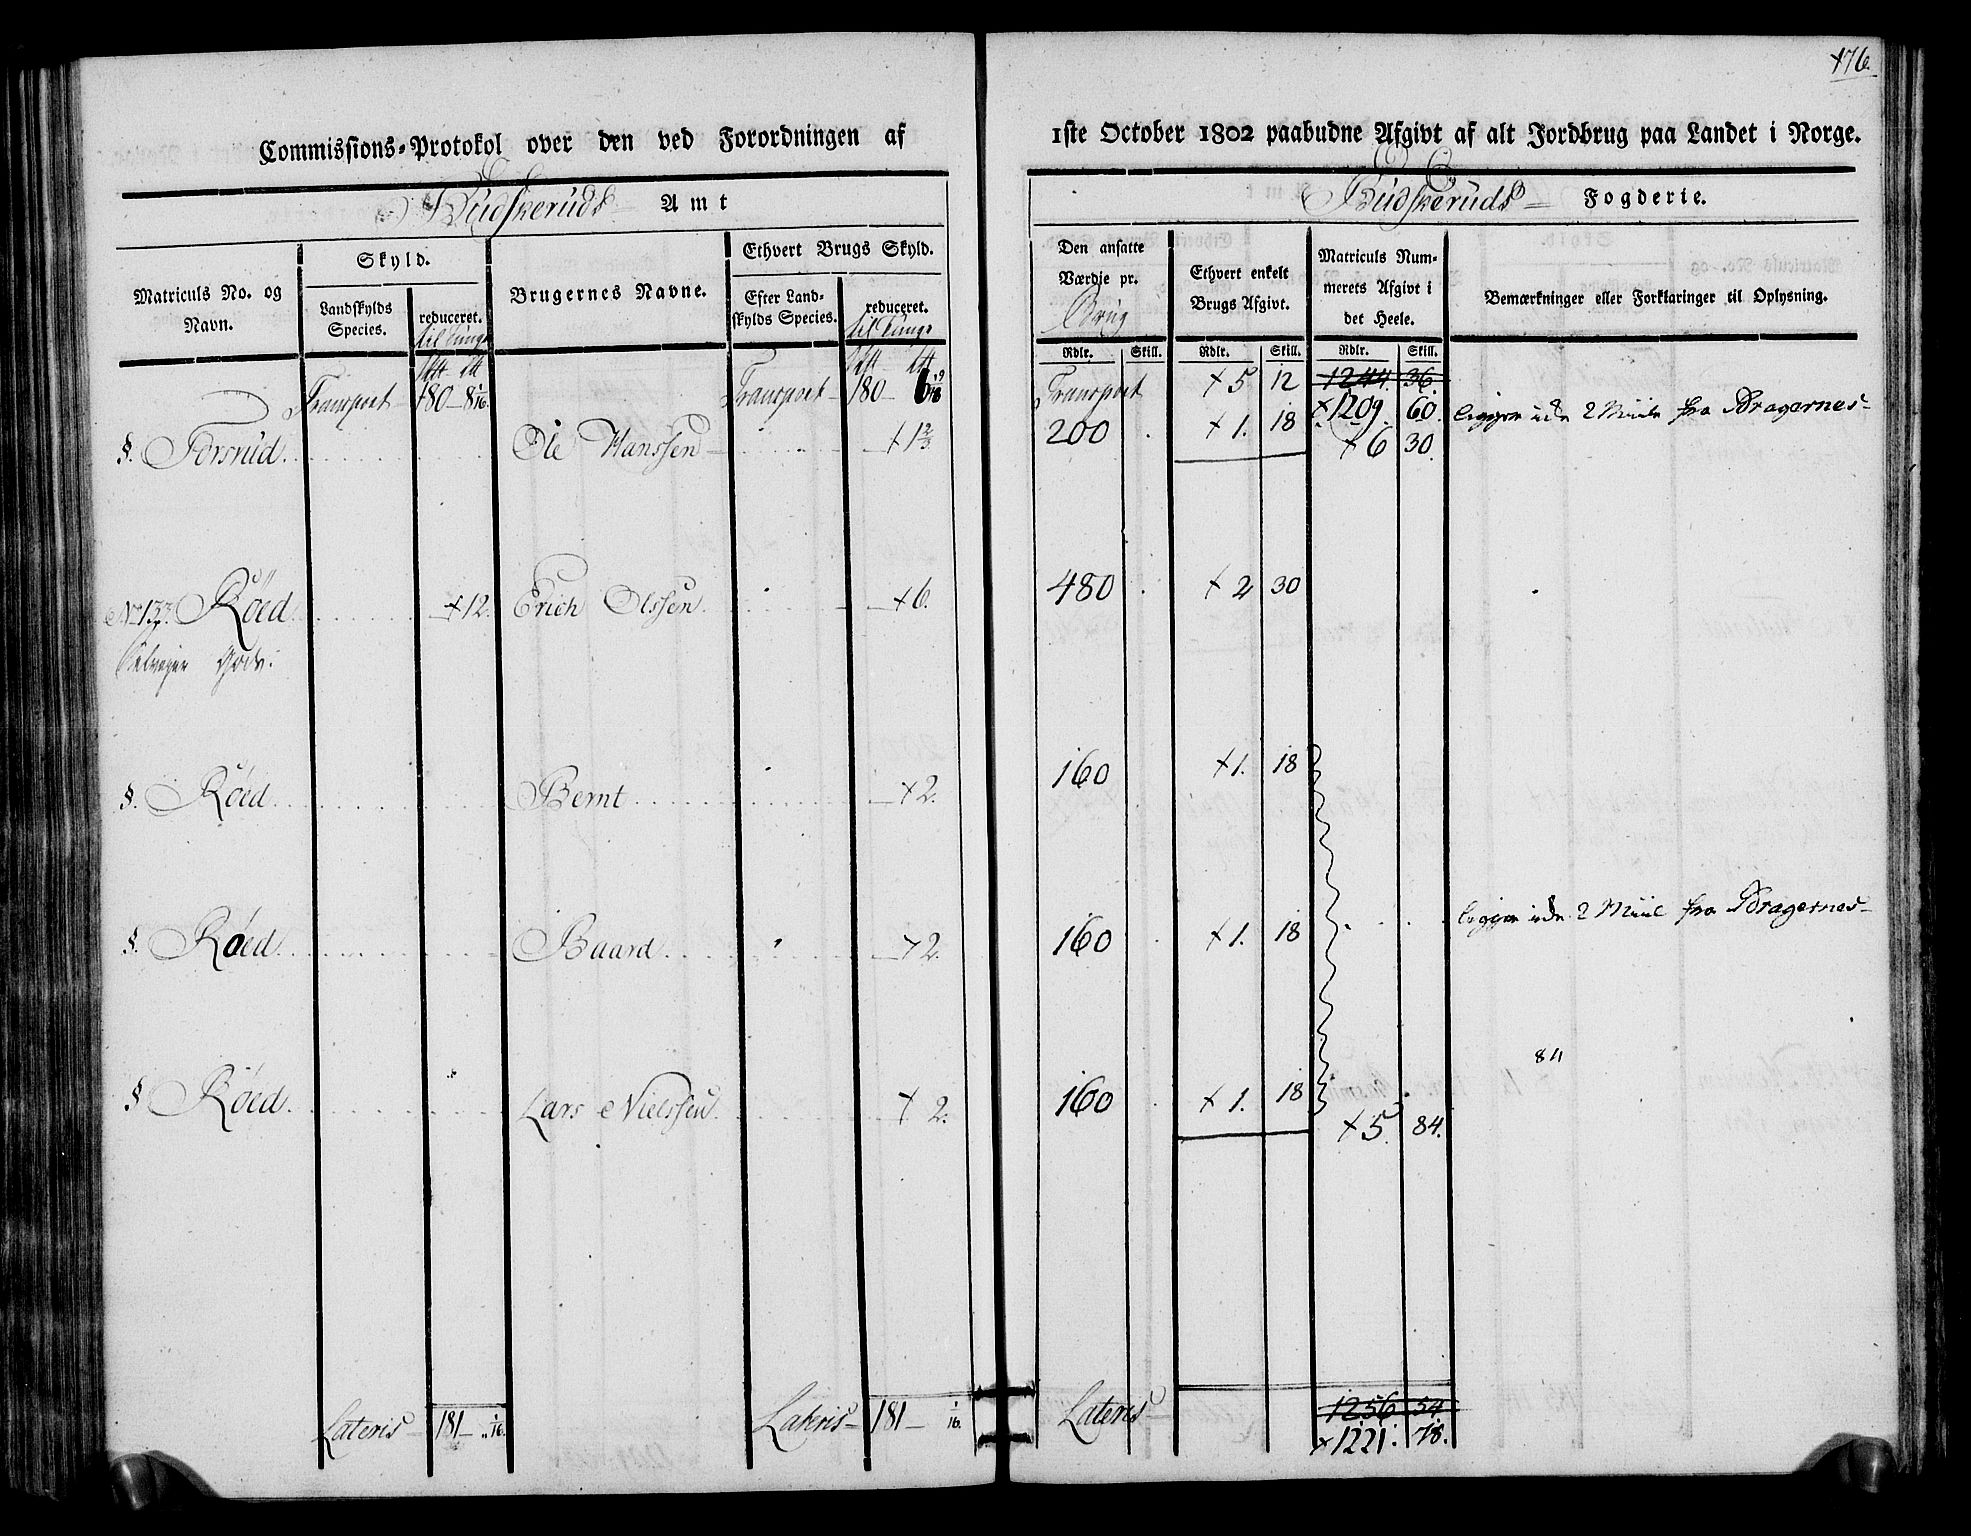 176.
Commissions-Protokol over den ved Forordningen af 1ste October 1802 paabudne Afgivt af alt Jordbrug paa Landet i Norge.
Budskeruds Amt
Budskeruds Fogderie.
Matriculs No. og Navn.
Skyld.
Landskylds Species.
reduceret. til Tunge
Brugernes Navne.
Ethvert Brugs Skyld.
Efter Landskylds Species.
reduceret. til Tunge
Den ansatte Værdie pr. Brug
Ethvert enkelt Brugs Afgivt.
Matriculs Nummerets Afgivt i det Heele.
Bemærkninger eller Forklaringer til Oplysning.
Rdlr. Skill. Rdlr. Skill. Rdlr. Skill.
Transport 180 - 8 1/16. Transport - 180 - Transport + 5 12 1244. 36.
+ 1209. 60.
§. Forsrud. Ole Hanssen + 1 2/3. 200 + 1. 18 + 6 30. ligger uden 2 Miile fra Bragernes-
No 137. Röed. + 12. Erich Olssen. + 6. 480 + 2 30
Selveyer Gods:
§. Röed. Bernt + 2. 160 + 1. 18
§. Röed. Baard + 2. 160 + 1. 18 ligger uden 2 Miil fra Bragernes-
84
§ Röed. Lars Nielssen. + 2. 160 + 1. 18
+ 5. 84.
Lateris - 181 - „ 1/16. Lateris - 181 - 1/16. Lateris 1256 54
+ 1221. 78.